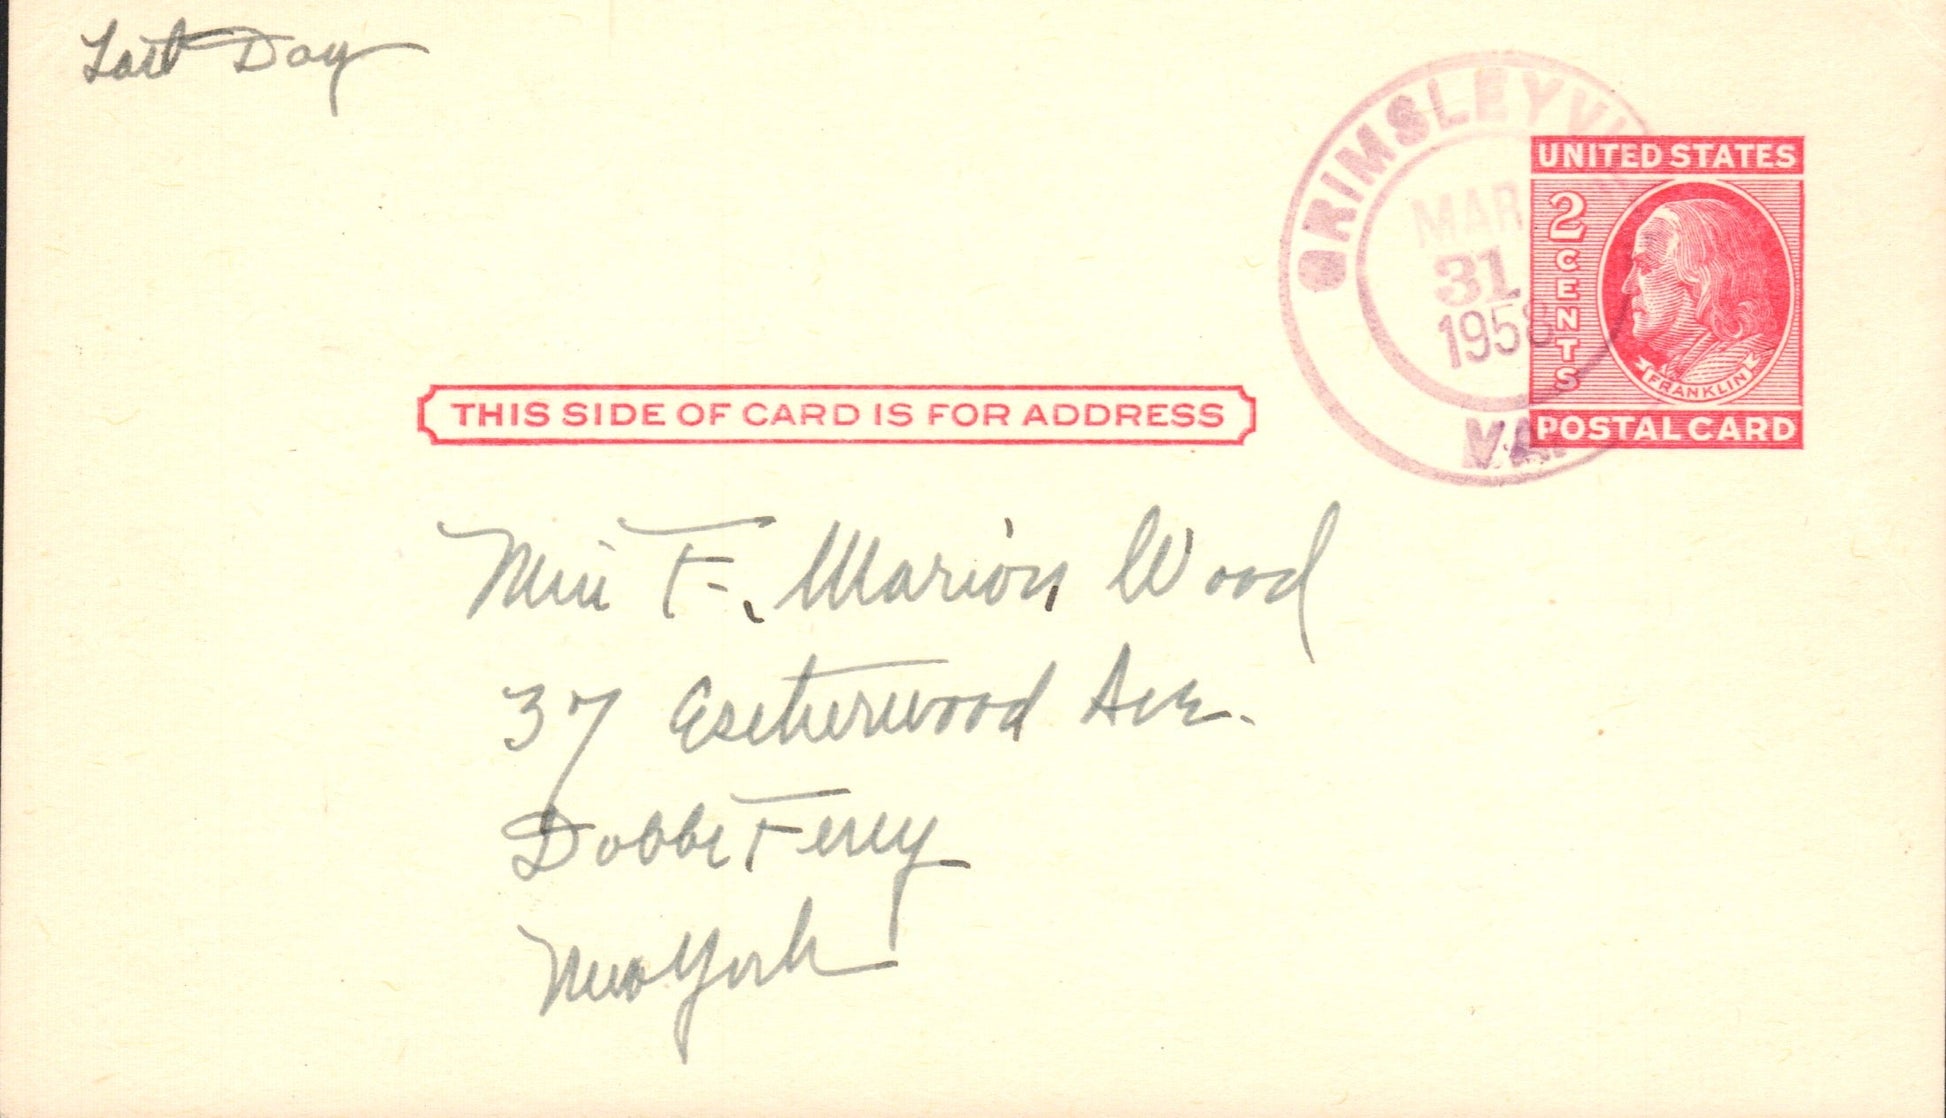 Last Day
GRIMSLEYVI
MAR
31
1958
VA
UNITED STATES
2 CENTS
FRANKLIN
POSTAL CARD
THIS SIDE OF CARD IS FOR ADDRESS
Miss F. Marion Wood
37 Esetherwood Ave.
Dobbs Ferry
New York